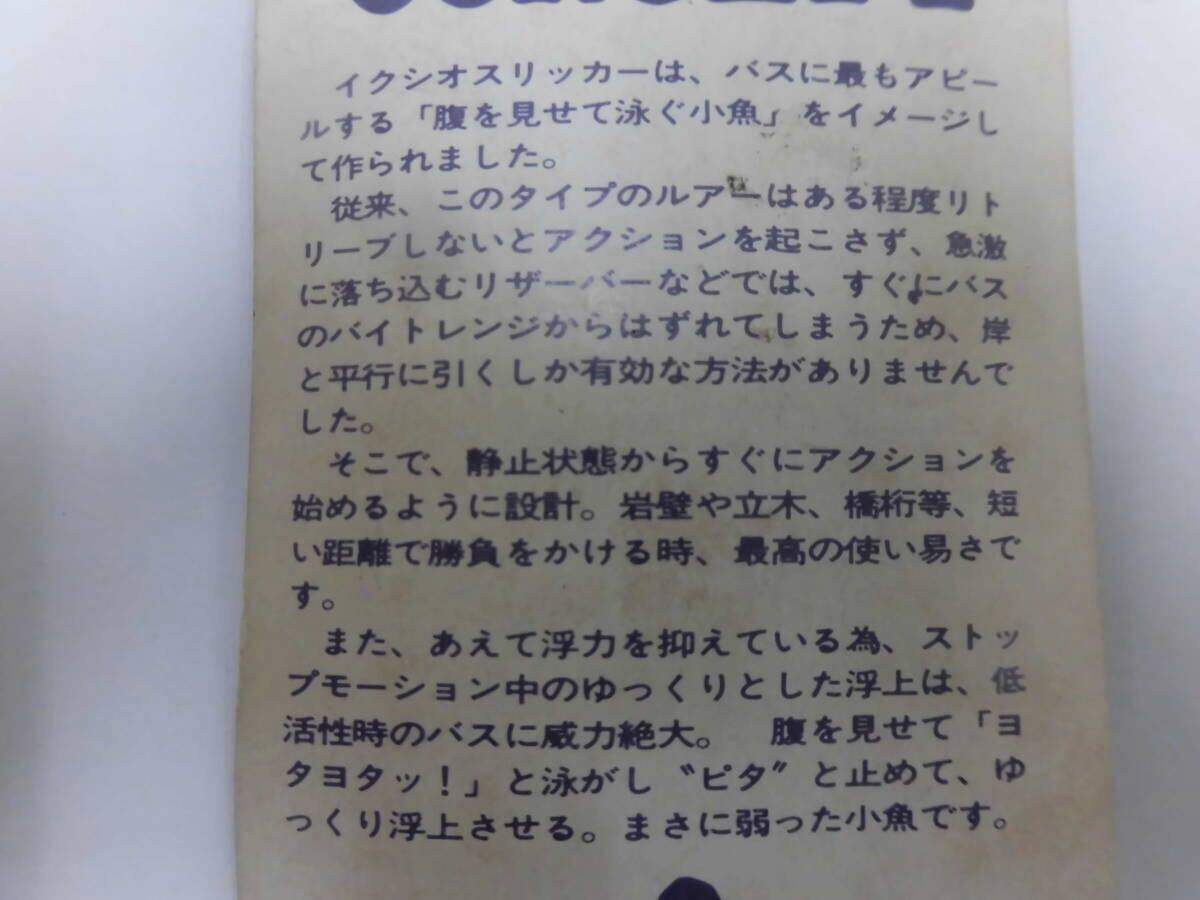 イクシオスリッカーは、バスに最もアピー
ルする「腹を見せて泳ぐ小魚」をイメージし
て作られました。
従来、このタイプのルアーはある程度リト
リーブしないとアクションを起こさず、急激
に落ち込むリザーバーなどでは、すぐにバス
のバイトレンジからはずれてしまうため、岸
と平行に引くしか有効な方法がありませんで
した。
そこで、静止状態からすぐにアクションを
始めるように設計。岩壁や立木、橋桁等、短
い距離で勝負をかける時、最高の使い易さで
す。
また、あえて浮力を抑えている為、ストッ
プモーション中のゆっくりとした浮上は、低
活性時のバスに威力絶大。 腹を見せて「ヨ
タヨタッ！」と泳がし〝ピタ〟と止めて、ゆ
っくり浮上させる。まさに弱った小魚です。